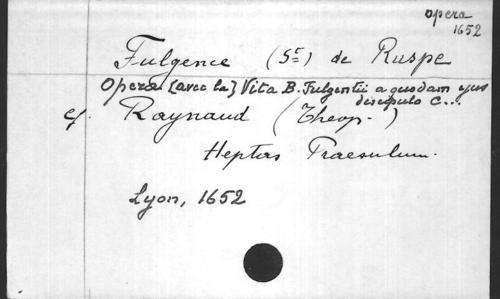 opera
1652
Fulgence (St) de Ruspe
Opera [avec la] Vita B. Fulgentii a quodam ejus
discipulo C...
cf. Raynaud (Theop.)
Heptas Praesulum.
Lyon, 1652